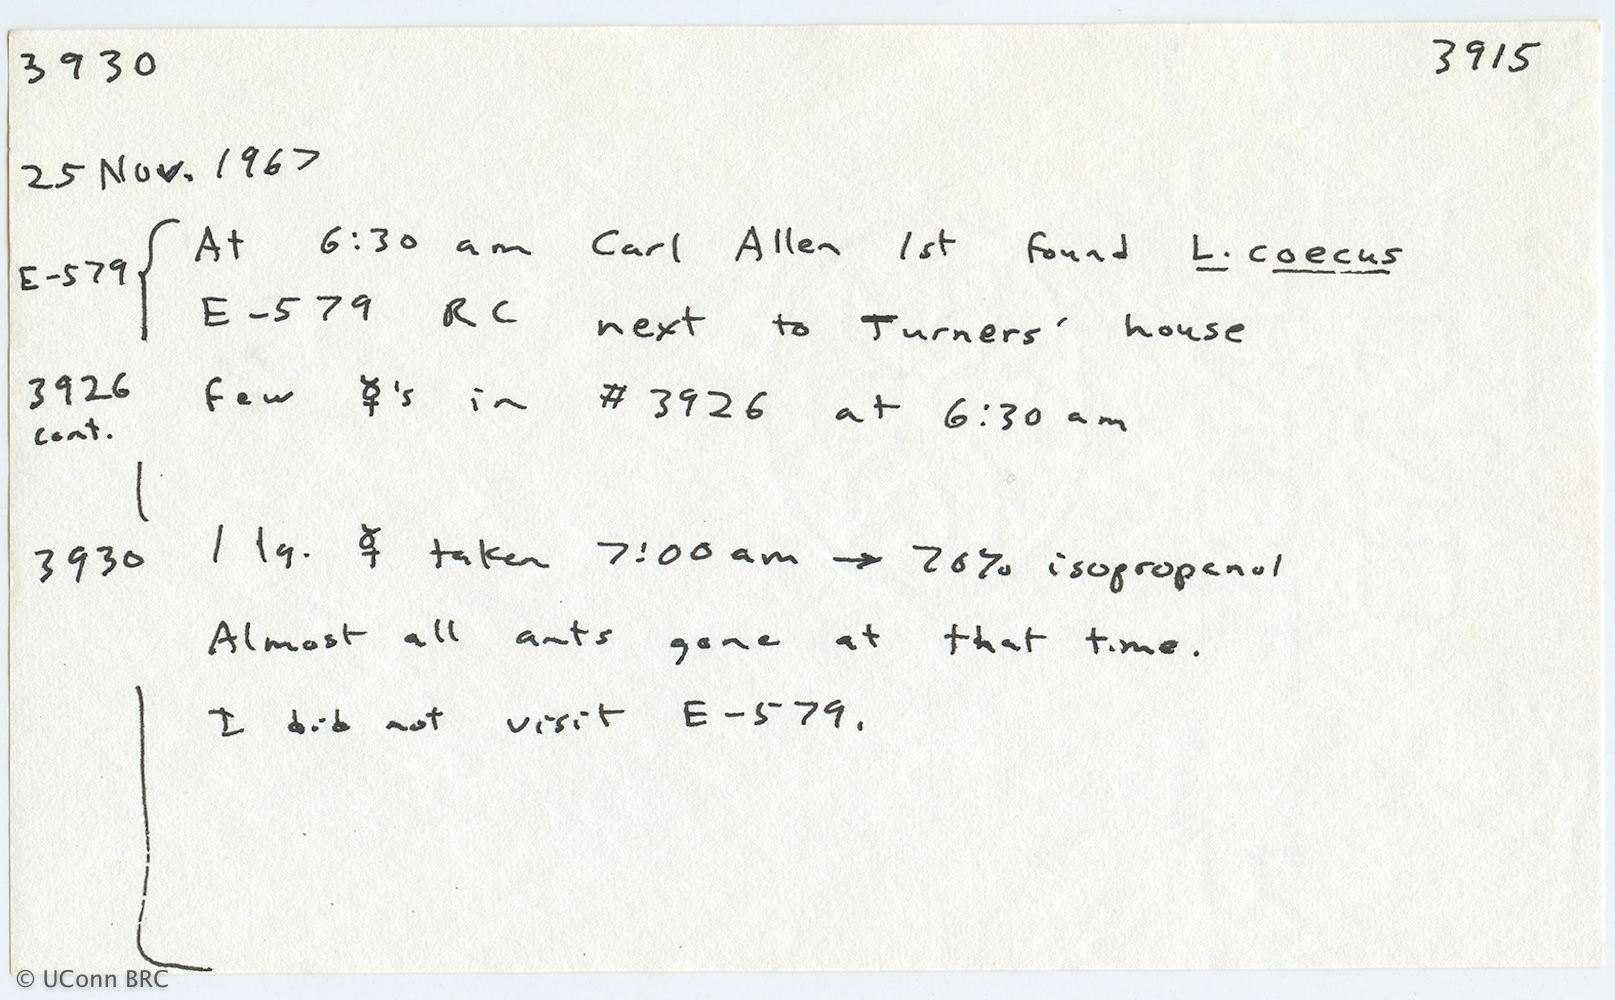 3930 3915
25 Nov. 1967
E-579 { At 6:30 am Carl Allen 1st found L. coecus
E-579 RC next to Turners' house
3926 few ☿'s in #3926 at 6:30 am
cont.
3930 1 lg. ☿ taken 7:00 am → 70% isopropanol
Almost all ants gone at that time.
I did not visit E-579.
© UConn BRC